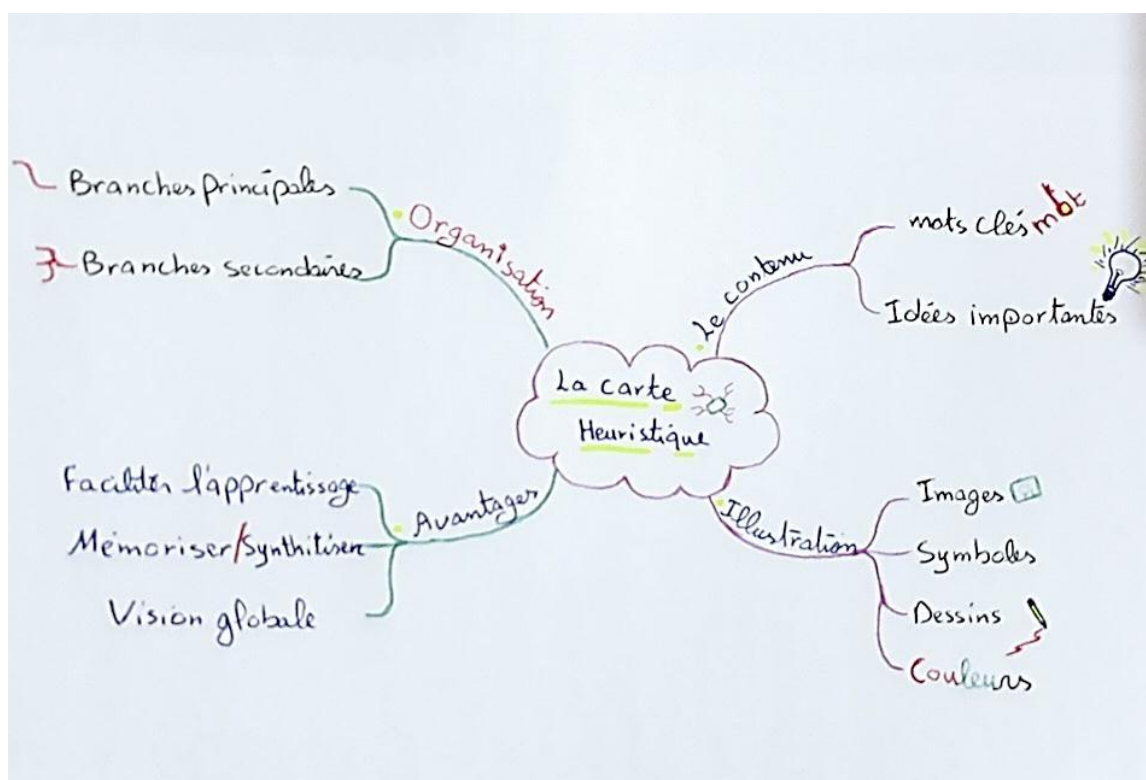 La carte
Heuristique
Organisation
Branches principales
Branches secondaires
Le contenu
mots clés mot
Idées importantes
Avantages
Faciliter l'apprentissage
Mémoriser/Synthitiser
Vision globale
Illustration
Images
Symboles
Dessins
Couleurs